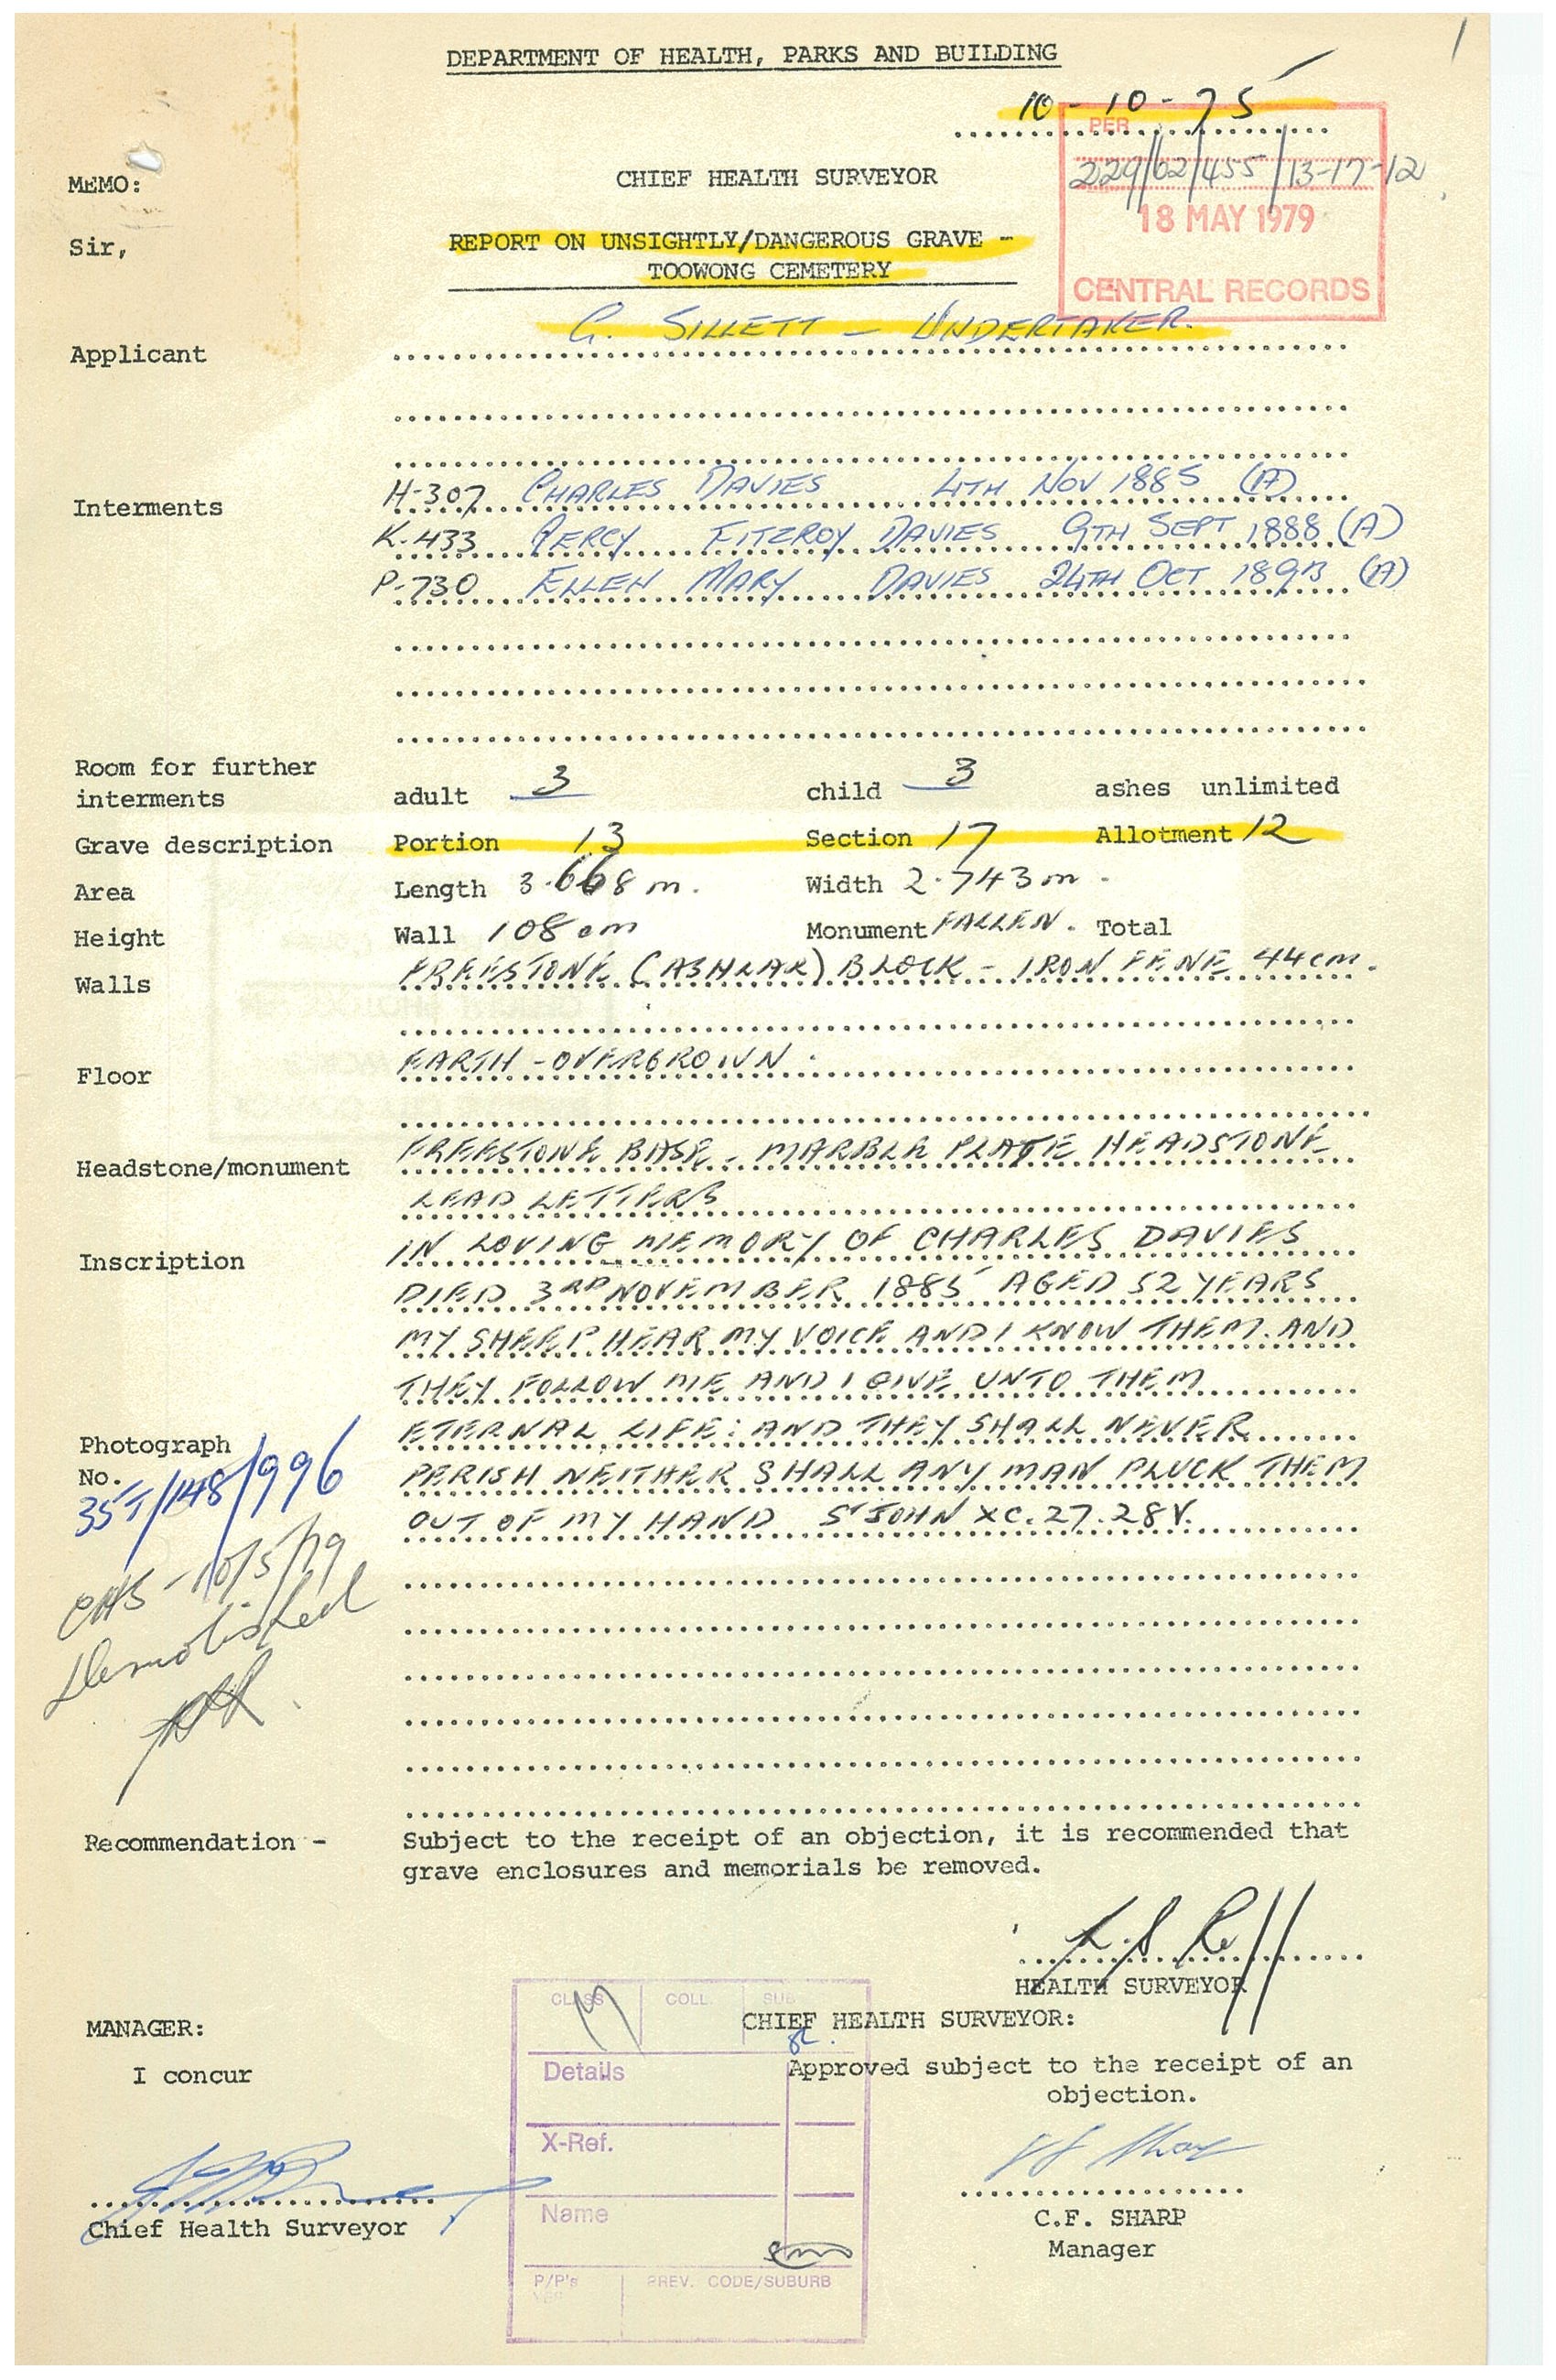 DEPARTMENT OF HEALTH, PARKS AND BUILDING
10-10-75
PER
229/62/455/13-17-12
18 MAY 1979
CENTRAL RECORDS
MEMO: CHIEF HEALTH SURVEYOR
Sir, REPORT ON UNSIGHTLY/DANGEROUS GRAVE -
TOOWONG CEMETERY
Applicant G. SILLETT - UNDERTAKER.
Interments H-307 CHARLES DAVIES 4TH NOV 1885 (A)
K-433 PERCY FITZROY DAVIES 9TH SEPT 1888 (A)
P-730 ELLEN MARY DAVIES 24TH OCT (A)
Room for further
interments adult 3 child 3 ashes unlimited
Grave description Portion 13 Section 17 Allotment 12
Area Length 3.668 m. Width 2.743 m.
Height Wall 108 cm Monument FALLEN. Total
Walls FREESTONE (ASHLAR) BLOCK - IRON FENE 44cm.
Floor EARTH - OVERGROWN.
Headstone/monument FREESTONE BASE - MARBLE PLATE HEADSTONE
LEAD LETTERS
Inscription IN LOVING MEMORY OF CHARLES DAVIES
DIED 3RD NOVEMBER 1885 AGED 52 YEARS
MY SHEEP HEAR MY VOICE AND I KNOW THEM. AND
THEY FOLLOW ME AND I GIVE UNTO THEM
ETERNAL LIFE: AND THEY SHALL NEVER
Photograph
No. PERISH NEITHER SHALL ANY MAN PLUCK THEM
35T/148/996
OUT OF MY HAND ST JOHN XC. 27. 28 V.
CHS - 10/5/79
Demolished
Recommendation - Subject to the receipt of an objection, it is recommended that
grave enclosures and memorials be removed.
HEALTH SURVEYOR
CLASS COLL. SUB
MANAGER: CHIEF HEALTH SURVEYOR:
I concur Approved subject to the receipt of an
objection.
Details
X-Ref.
Name
Chief Health Surveyor C.F. SHARP
Manager
P/P's PREV. CODE/SUBURB